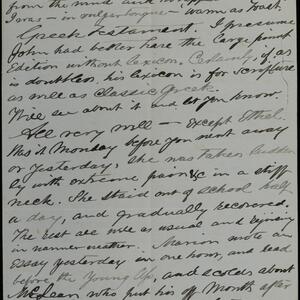 from the wind and
I was - in vulgar tongue - warm as toast.
Greek Testament. I presume
John had better have the large print
Edition without lexicon, Certainly if as
is doubtless his lexicon is for Scripture
as well as Classic Greek.
Will see about it and let you know.
All very well - except Ethel,
Monday before you went away
or Yesterday, she was taken sudden
ly with extreme pain &c in a stiff
neck. She staid out of school half
a day, and gradually recovered.
The rest are well as usual and enjoying
in manner weather. Marion wrote an
Essay yesterday in one hour, and read
before the Young
and scolds about
McLean who put his off Month after